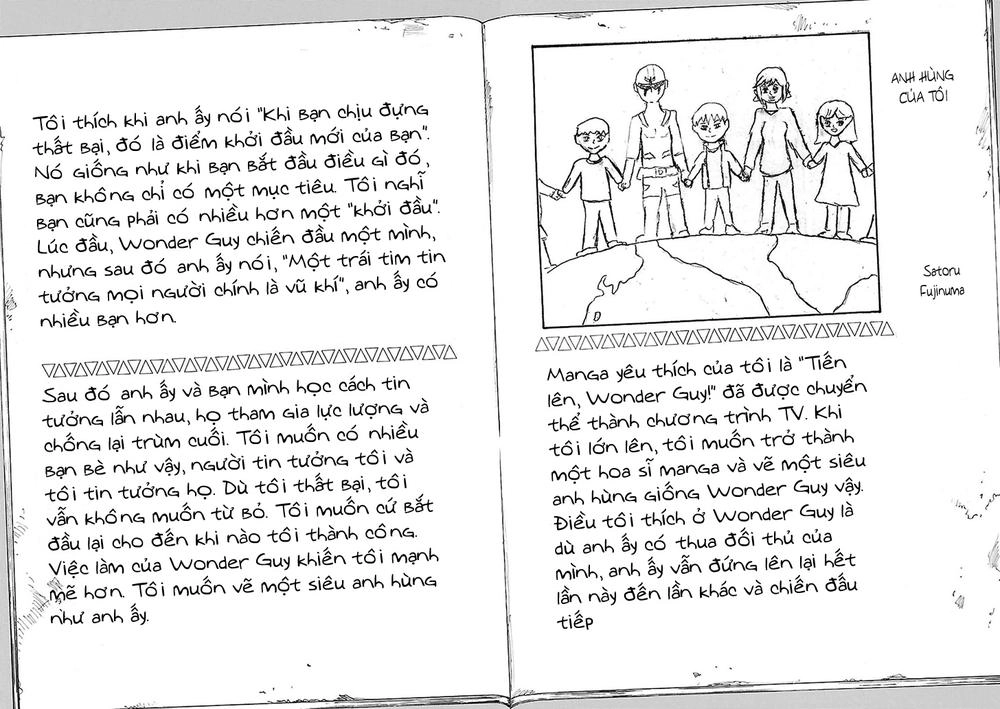 ANH HÙNG
CỦA TÔI
Satoru
Fujinuma
Manga yêu thích của tôi là "Tiến
lên, Wonder Guy!" đã được chuyển
thể thành chương trình TV. Khi
tôi lớn lên, tôi muốn trở thành
một họa sĩ manga và vẽ một siêu
anh hùng giống Wonder Guy vậy.
Điều tôi thích ở Wonder Guy là
dù anh ấy có thua đối thủ của
mình, anh ấy vẫn đứng lên lại hết
lần này đến lần khác và chiến đấu
tiếp
Tôi thích khi anh ấy nói "Khi bạn chịu đựng
thất bại, đó là điểm khởi đầu mới của bạn".
Nó giống như khi bạn bắt đầu điều gì đó,
bạn không chỉ có một mục tiêu. Tôi nghĩ
bạn cũng phải có nhiều hơn một "khởi đầu".
Lúc đầu, Wonder Guy chiến đầu một mình,
nhưng sau đó anh ấy nói, "Một trái tim tin
tưởng mọi người chính là vũ khí", anh ấy có
nhiều bạn hơn.
Sau đó anh ấy và bạn mình học cách tin
tưởng lẫn nhau, họ tham gia lực lượng và
chống lại trùm cuối. Tôi muốn có nhiều
bạn bè như vậy, người tin tưởng tôi và
tôi tin tưởng họ. Dù tôi thất bại, tôi
vẫn không muốn từ bỏ. Tôi muốn cứ bắt
đầu lại cho đến khi nào tôi thành công.
Việc làm của Wonder Guy khiến tôi mạnh
mẽ hơn. Tôi muốn vẽ một siêu anh hùng
như anh ấy.